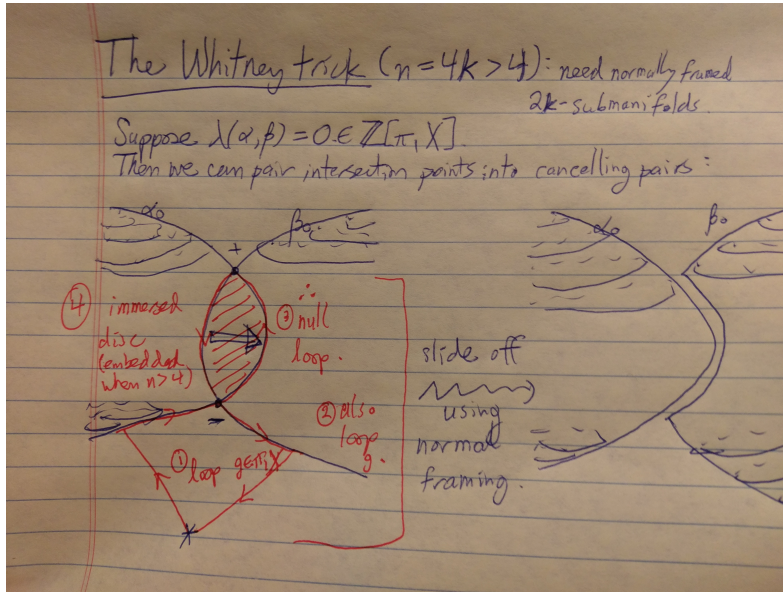 The Whitney trick (n=4k>4): need normally framed
2k-submanifolds.
Suppose λ(α,β)=0∈ℤ[π₁X].
Then we can pair intersection points into cancelling pairs:
α₀
β₀
+
④ immersed
disc
(embedded
when n>4)
③ ∴
null
loop.
② also
loop
g.
−
① loop g∈π₁X
slide off
using
normal
framing.
α₀
β₀